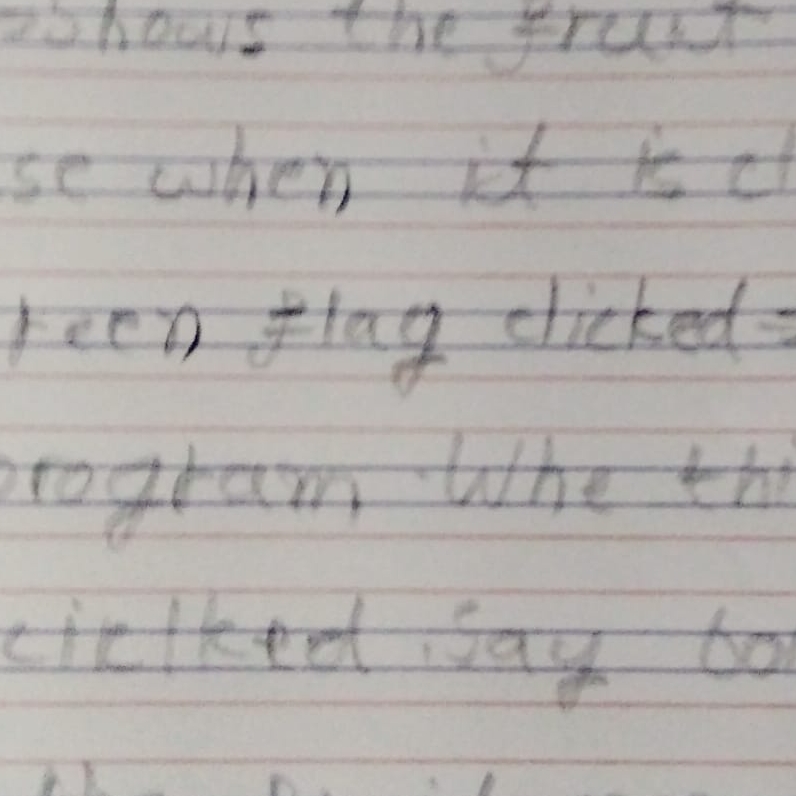 shows the fruit
se when it is cl
reen flag clicked =
program Whe thi
cielked say